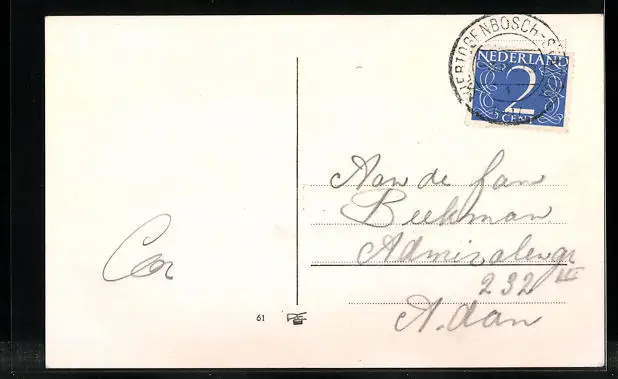 'SHERTOGENBOSCH-S
NEDERLAND
2
CENT
Aan de fam
Beekman
Admiralengr
232 III
A.dam
Cor
61